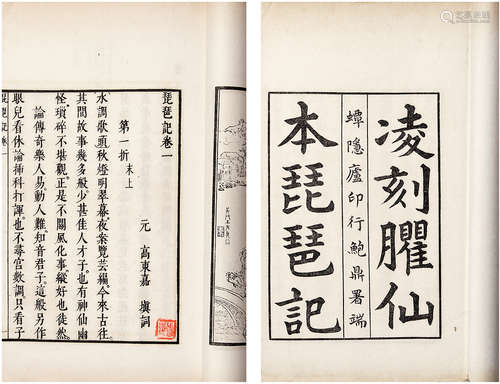 凌刻臞仙
本琵琶記
蟫隱廬印行鮑鼎署端
琵琶記卷一
元 高東嘉 塡詞
第一折 末上
水調歌頭秋燈明翠幕。夜案覽芸編。今來古往。
其間故事幾多般。少甚佳人才子。也有神仙幽
怪。瑣碎不堪觀。正是不關風化事。縱好也徒然。
論傳奇。樂人易。動人難。知音君子。這般另作
眼兒看。休論插科打諢。也不尋宮數調。只看子
琵琶記卷一